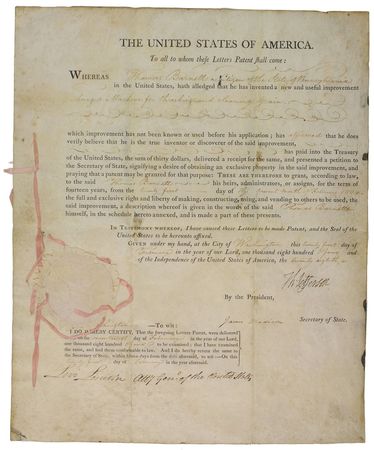 THE UNITED STATES OF AMERICA.
To all to whom these Letters Patent shall come:
WHEREAS Thomas Barnett a Citizen of the State of Pennsylvania
in the United States, hath alledged that he has invented a new and useful improvement
which improvement has not been known or used before his application; has affirmed that he does
verily believe that he is the true inventor or discoverer of the said improvement,
has paid into the Treasury
of the United States, the sum of thirty dollars, delivered a receipt for the same, and presented a petition to
the Secretary of State, signifying a desire of obtaining an exclusive property in the said improvement, and
praying that a patent may be granted for that purpose: THESE ARE THEREFORE to grant, according to law,
to the said Thomas Barnett his heirs, administrators, or assigns, for the term of
fourteen years, from the twenty first day of
the full and exclusive right and liberty of making, constructing, using, and vending to others to be used, the
said improvement, a description whereof is given in the words of the said Thomas Barnett
himself, in the schedule hereto annexed, and is made a part of these presents.
IN TESTIMONY WHEREOF, I have caused these Letters to be made Patent, and the Seal of the
United States to be hereunto affixed.
GIVEN under my hand, at the City of Washington this twenty first day of
in the year of our Lord, one thousand eight hundred & four
and of the Independence of the United States of America, the twenty eighth
Th Jefferson
By the President,
James Madison Secretary of State.
To wit:
I DO HEREBY CERTIFY, That the foregoing Letters Patent, were delivered
day of February in the year of our Lord,
one thousand eight hundred to be examined; that I have examined
the same, and find them conformable to law. And I do hereby return the same to
the Secretary of State, within fifteen days from the date aforesaid, to wit:—On this
day of in the year aforesaid.
Levi Lincoln Atty Genl. of the United States